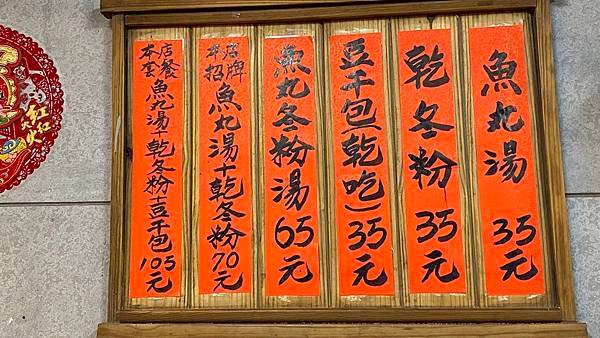 魚丸湯 35元
乾冬粉 35元
豆干包(乾吃)35元
魚丸冬粉湯 65元
本店招牌 魚丸湯+乾冬粉70元
本店套餐 魚丸湯+乾冬粉+豆干包105元